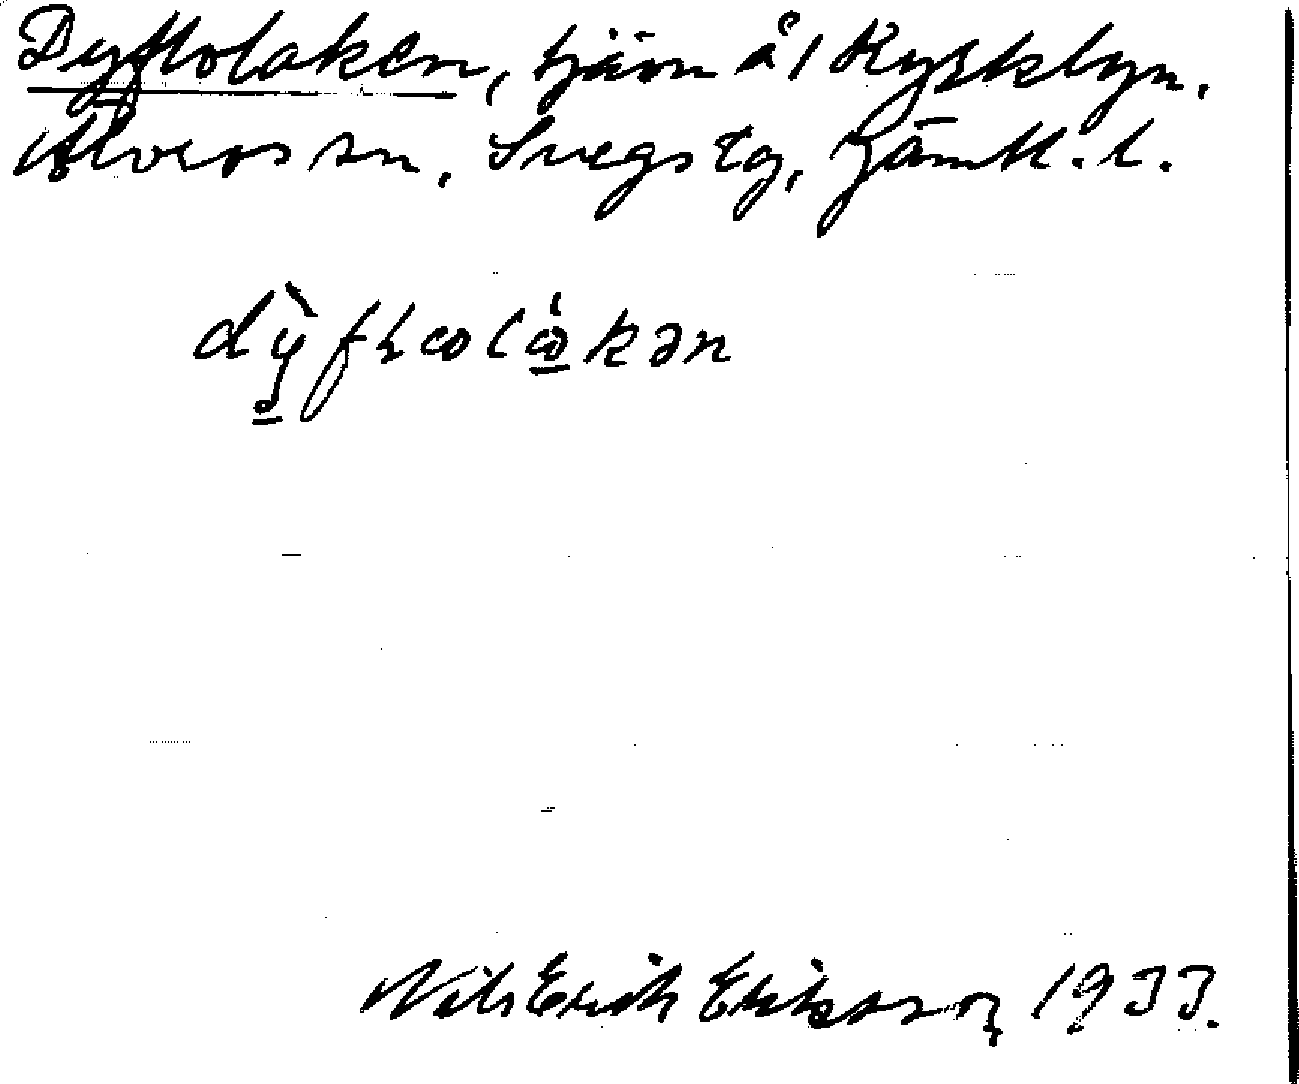 Dyftolaken, tjärn å / Kyrkbyn.
Älvros sn, Svegs tg, Jämtl. l.
Nils Erik Eriksson 1933.